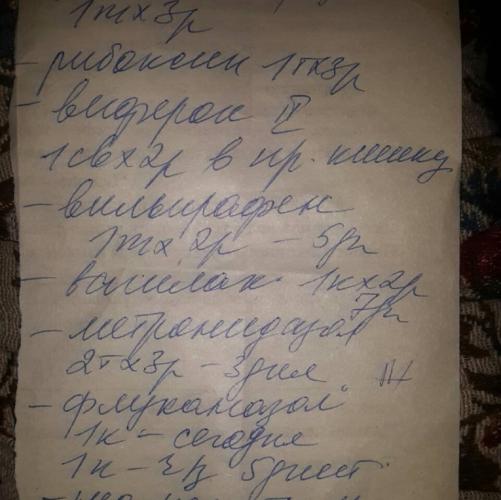 1т х 3р
- рибоксин 1т х 3р
- виферон II
1 св х 2р в пр. кишку
- вильпрафен
1т х 2р - 5дн
- вагилак 1к х 2р
7дн
- метронидазол
2т х 3р - 3дня
- флуконазол
1к - сегодня
1к - ч/з 5дней